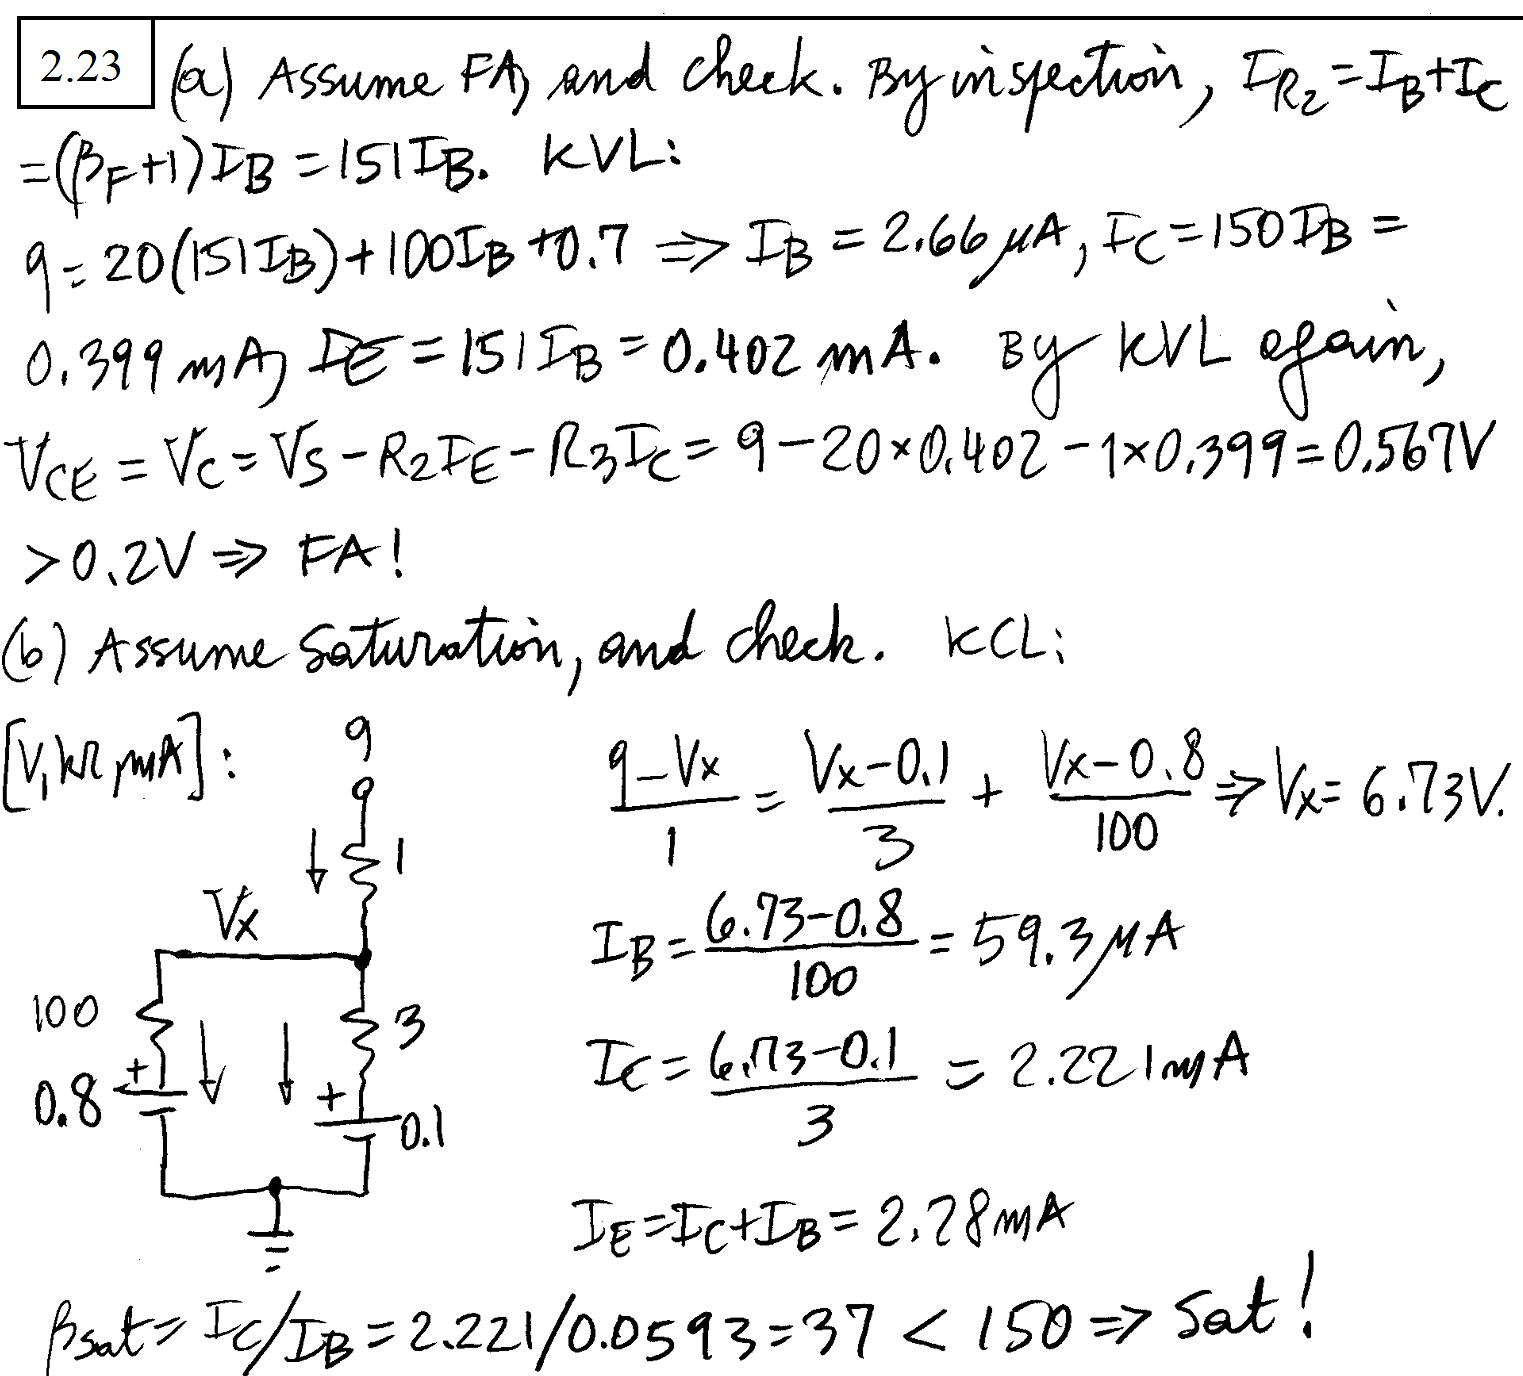 2.23 (a) Assume FA, and check. By inspection, I_R2 = I_B + I_C
= (β_F+1)I_B = 151I_B. KVL:
9 = 20(151I_B) + 100I_B + 0.7 ⇒ I_B = 2.66 μA, I_C = 150I_B =
0.399 mA, I_E = 151I_B = 0.402 mA. By KVL again,
V_CE = V_C = V_S - R_2I_E - R_3I_C = 9 - 20×0.402 - 1×0.399 = 0.567V
> 0.2V ⇒ FA!
(b) Assume saturation, and check. KCL:
[V, kΩ, mA]:
9
1
V_X
100
3
+
0.8
+
0.1
(9 - V_X)/1 = (V_X - 0.1)/3 + (V_X - 0.8)/100 ⇒ V_X = 6.73V.
I_B = (6.73 - 0.8)/100 = 59.3 μA
I_C = (6.73 - 0.1)/3 = 2.221 mA
I_E = I_C + I_B = 2.28 mA
β_sat = I_C/I_B = 2.221/0.0593 = 37 < 150 ⇒ Sat!